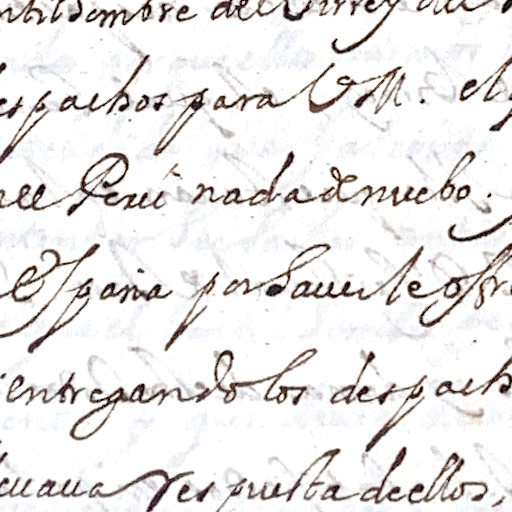 del Virrey del
espachos para VM. el
el Perú nada de nuebo.
España por haverle offre
entregando los despach
levava respuesta de ellos,